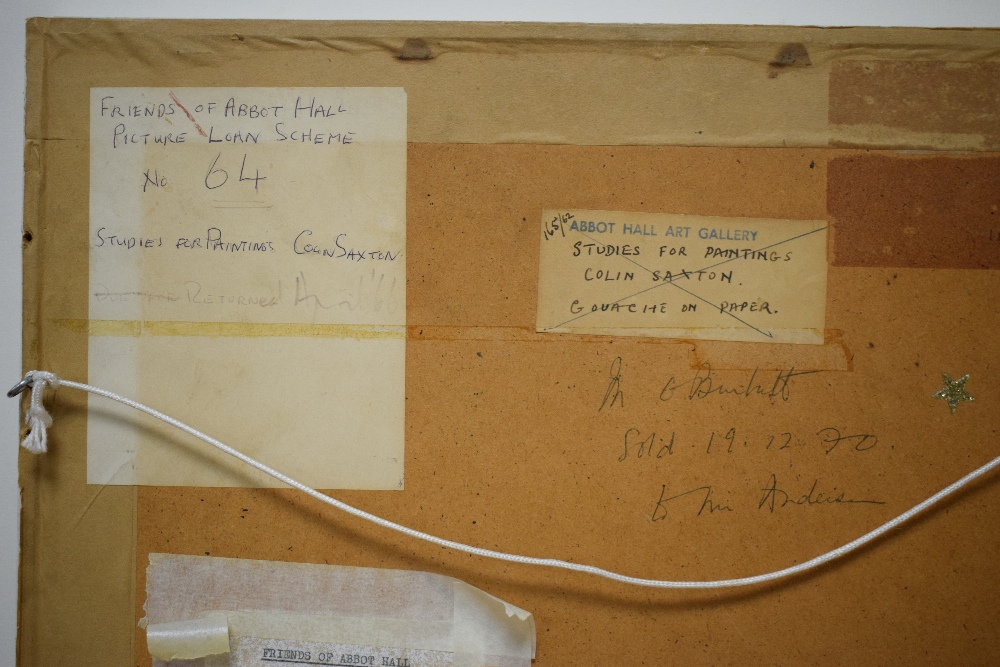 FRIENDS OF ABBOT HALL
PICTURE LOAN SCHEME
No 64
STUDIES FOR PAINTINGS COLIN SAXTON
RETURNED April '66
165/62 ABBOT HALL ART GALLERY
STUDIES FOR PAINTINGS
COLIN SAXTON.
GOUACHE ON PAPER.
M E Burkett
Sold 19.12.70.
to Mr Anderson
FRIENDS OF ABBOT HALL